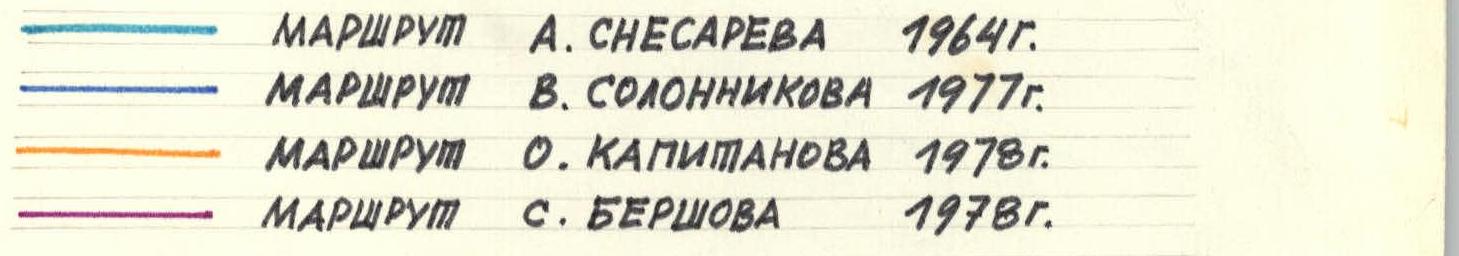 МАРШРУТ А. СНЕСАРЕВА 1964г.
МАРШРУТ В. СОЛОННИКОВА 1977г.
МАРШРУТ О. КАПИТАНОВА 1978г.
МАРШРУТ С. БЕРШОВА 1978г.